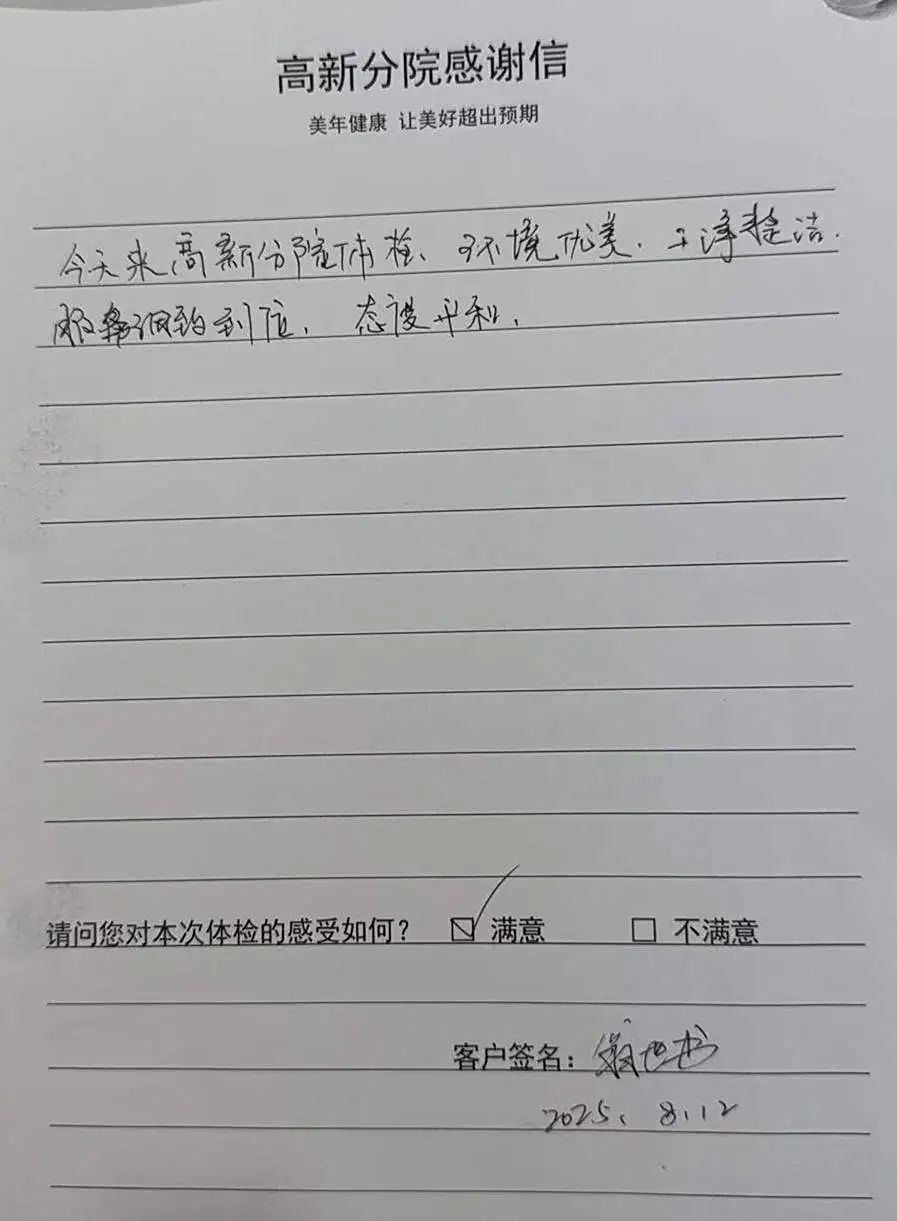 高新分院感谢信
美年健康 让美好超出预期
今天来高新分院体检、环境优美.干净整洁.
服务细致到位.态度平和.
请问您对本次体检的感受如何? ☑ 满意 □ 不满意
客户签名:
2025.8.12